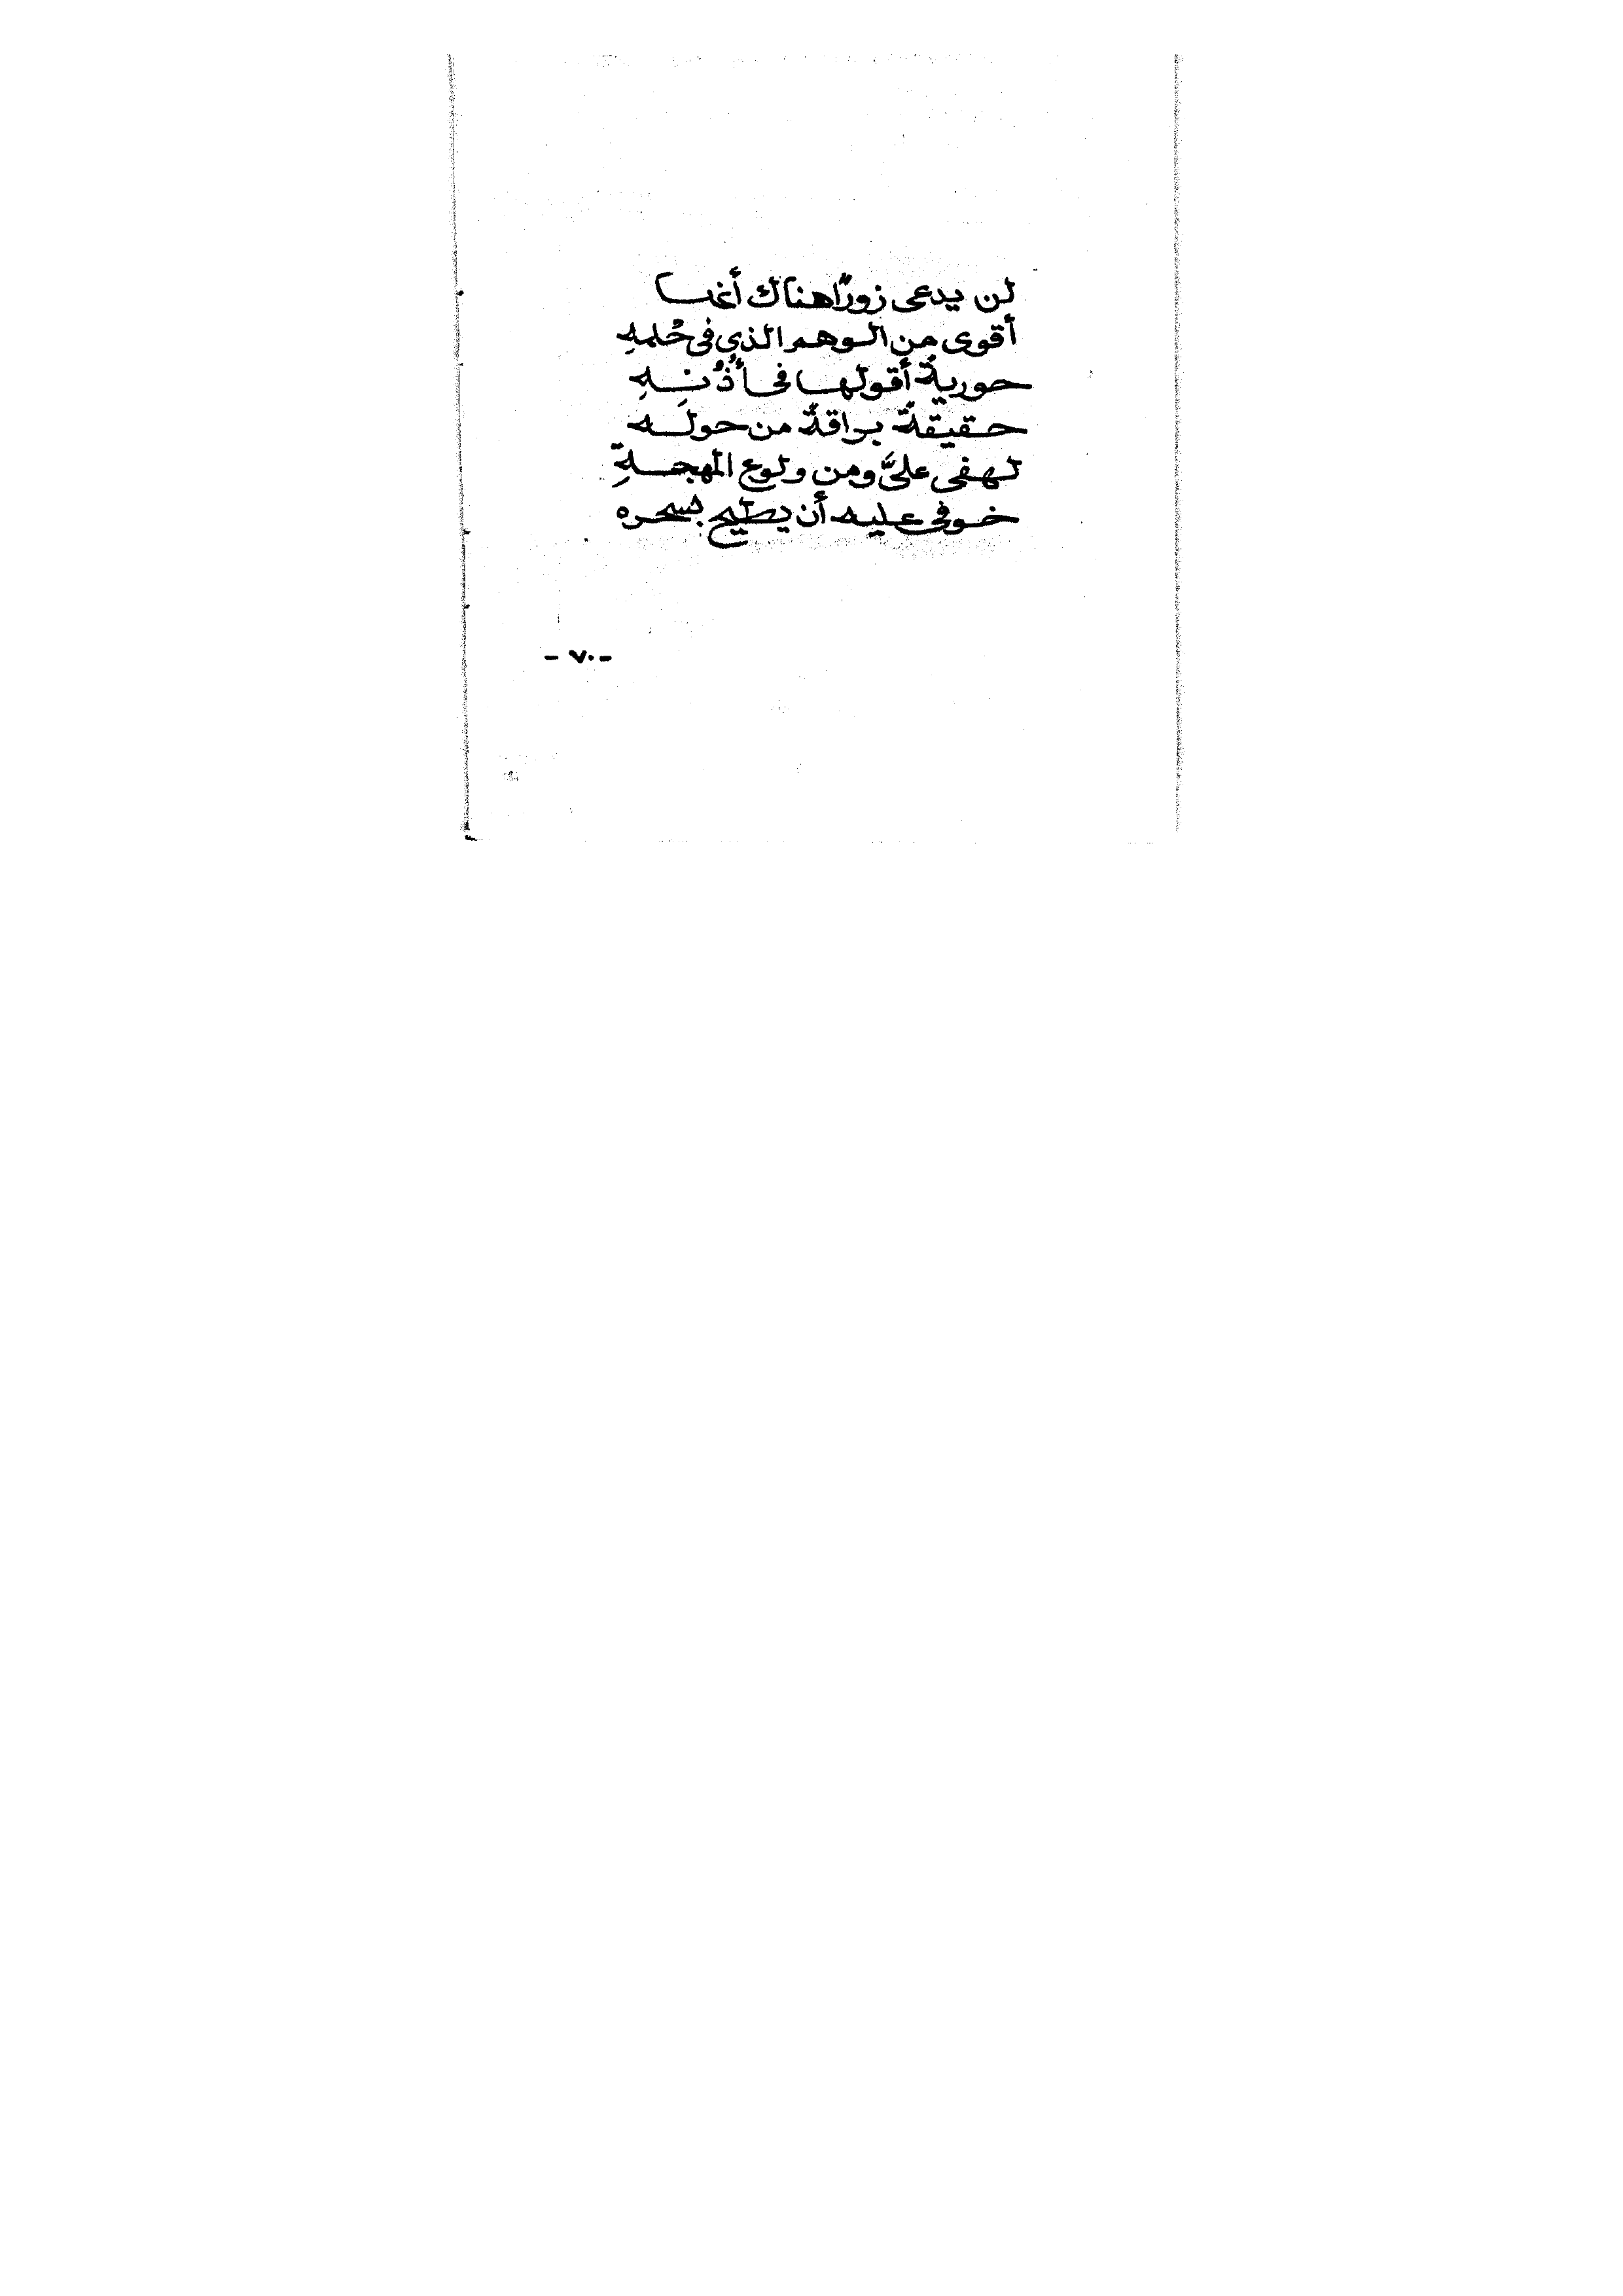 لن يدعى زورًا هناك أننا
أقوى من الوهم الذي في حُلمهِ
حوريةٌ أقولها في أُذُنِهِ
حقيقةٌ براقةٌ من حوله
لهفي عليَّ ومن ولوع المهجةِ
خوفي عليه أن يطيح بسحره
- ٧٠ -